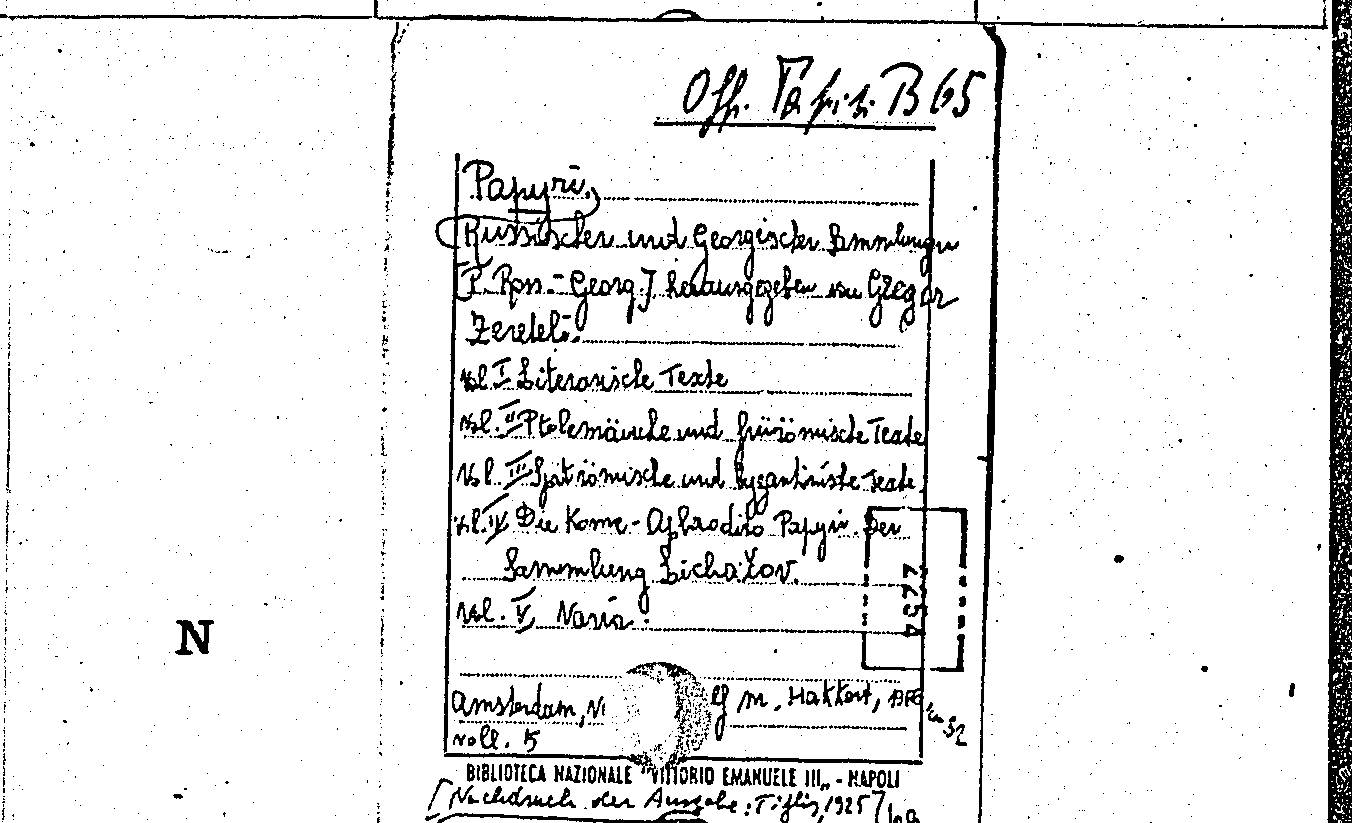 Off. Papiri. B 65
Papyri
Russischer und Georgischer Sammlungen
[P. Ross.-Georg.] herausgegeben von Gregor
Zereteli.
vol. I Literarische Texte
vol. II Ptolemäische und frürömische Texte
vol. III Spätrömische und byzantinische Texte.
vol. IV Die Kome-Aphrodito Papyri der
Sammlung Lichačov.
vol. V Varia.
77534
N
Amsterdam, M. Hakkert,
voll. 5
BIBLIOTECA NAZIONALE "VITTORIO EMANUELE III„ - NAPOLI
[Nachdruck der Ausgabe: Tiflis, 1925